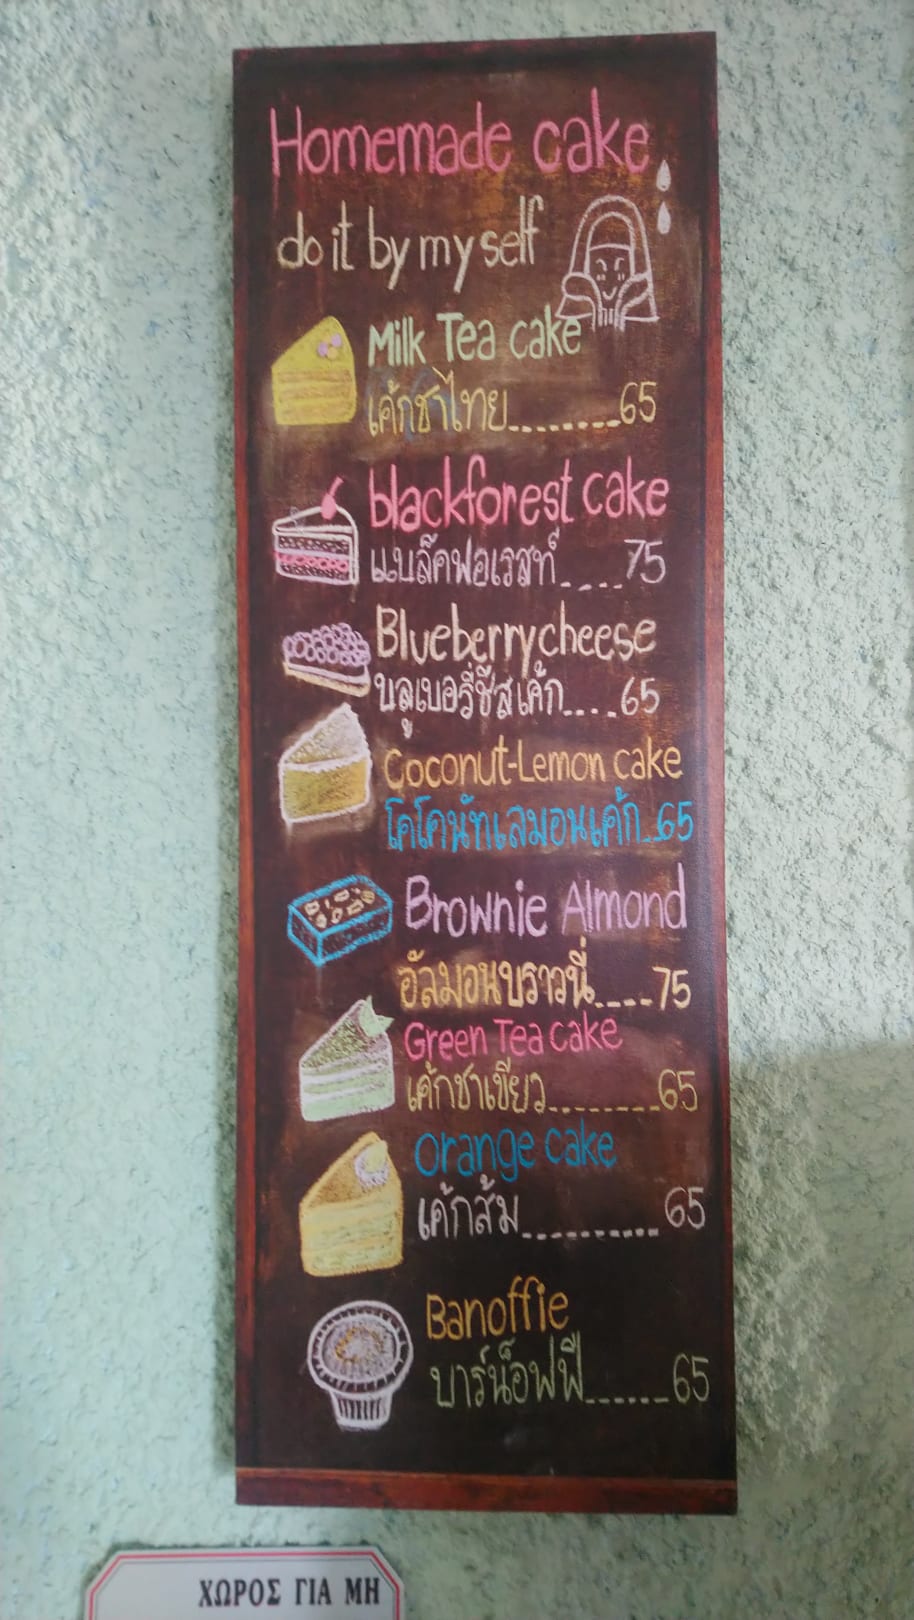 Homemade cake
do it by my self
Milk Tea cake
เค้กชาไทย........65
blackforest cake
แบล็คฟอเรสท์....75
Blueberrycheese
บลูเบอรี่ชีสเค้ก....65
Coconut-Lemon cake
โคโคนัทเลมอนเค้ก..65
Brownie Almond
อัลมอนบราวนี่....75
Green Tea cake
เค้กชาเขียว........65
Orange cake
เค้กส้ม..........65
Banoffie
บาร์น็อฟฟี่......65
ΧΩΡΟΣ ΓΙΑ ΜΗ